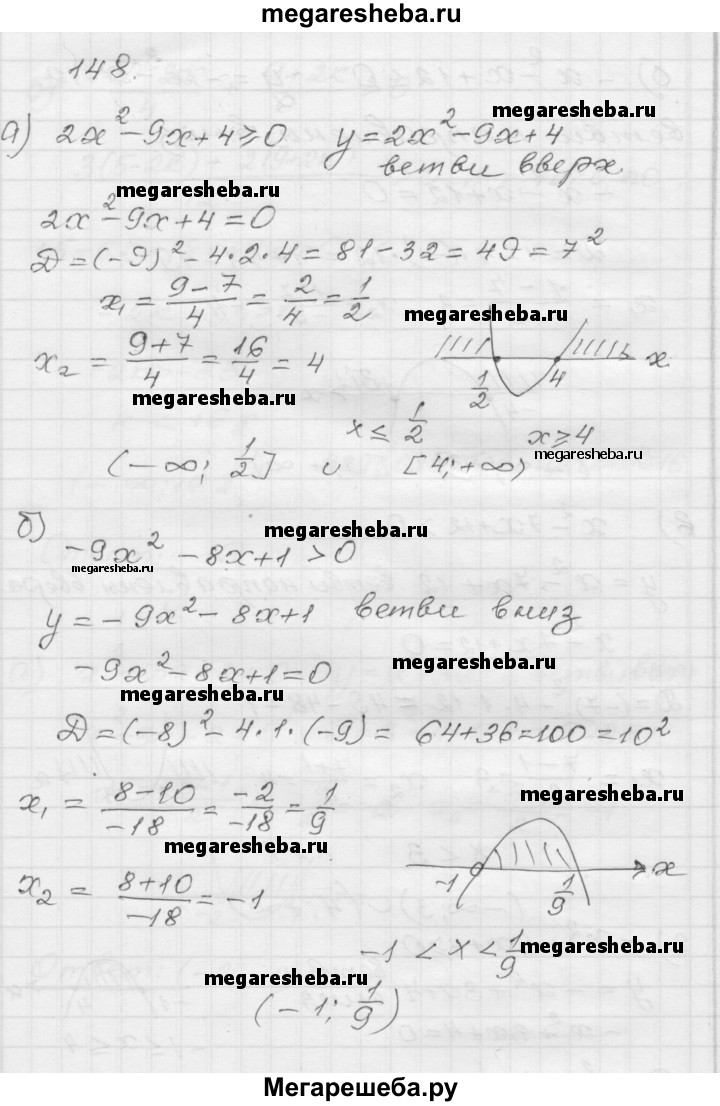 megaresheba.ru
148.
а) 2x² - 9x + 4 ≥ 0 y = 2x² - 9x + 4
megaresheba.ru
ветви вверх.
megaresheba.ru
2x² - 9x + 4 = 0
Д = (-9)² - 4·2·4 = 81 - 32 = 49 = 7²
x₁ = (9 - 7)/4 = 2/4 = 1/2
megaresheba.ru
x₂ = (9 + 7)/4 = 16/4 = 4
x
1/2 4
megaresheba.ru
x ≤ 1/2 x ≥ 4
megaresheba.ru
(-∞; 1/2] ∪ [4; +∞)
б) -9x² - 8x + 1 > 0
megaresheba.ru
megaresheba.ru
y = -9x² - 8x + 1 ветви вниз
-9x² - 8x + 1 = 0
megaresheba.ru
megaresheba.ru
Д = (-8)² - 4·1·(-9) = 64 + 36 = 100 = 10²
x₁ = (8 - 10)/-18 = -2/-18 = 1/9
megaresheba.ru
megaresheba.ru
x₂ = (8 + 10)/-18 = -1
x
-1 1/9
-1 < x < 1/9
megaresheba.ru
megaresheba.ru
(-1; 1/9)
Мегарешеба.ру